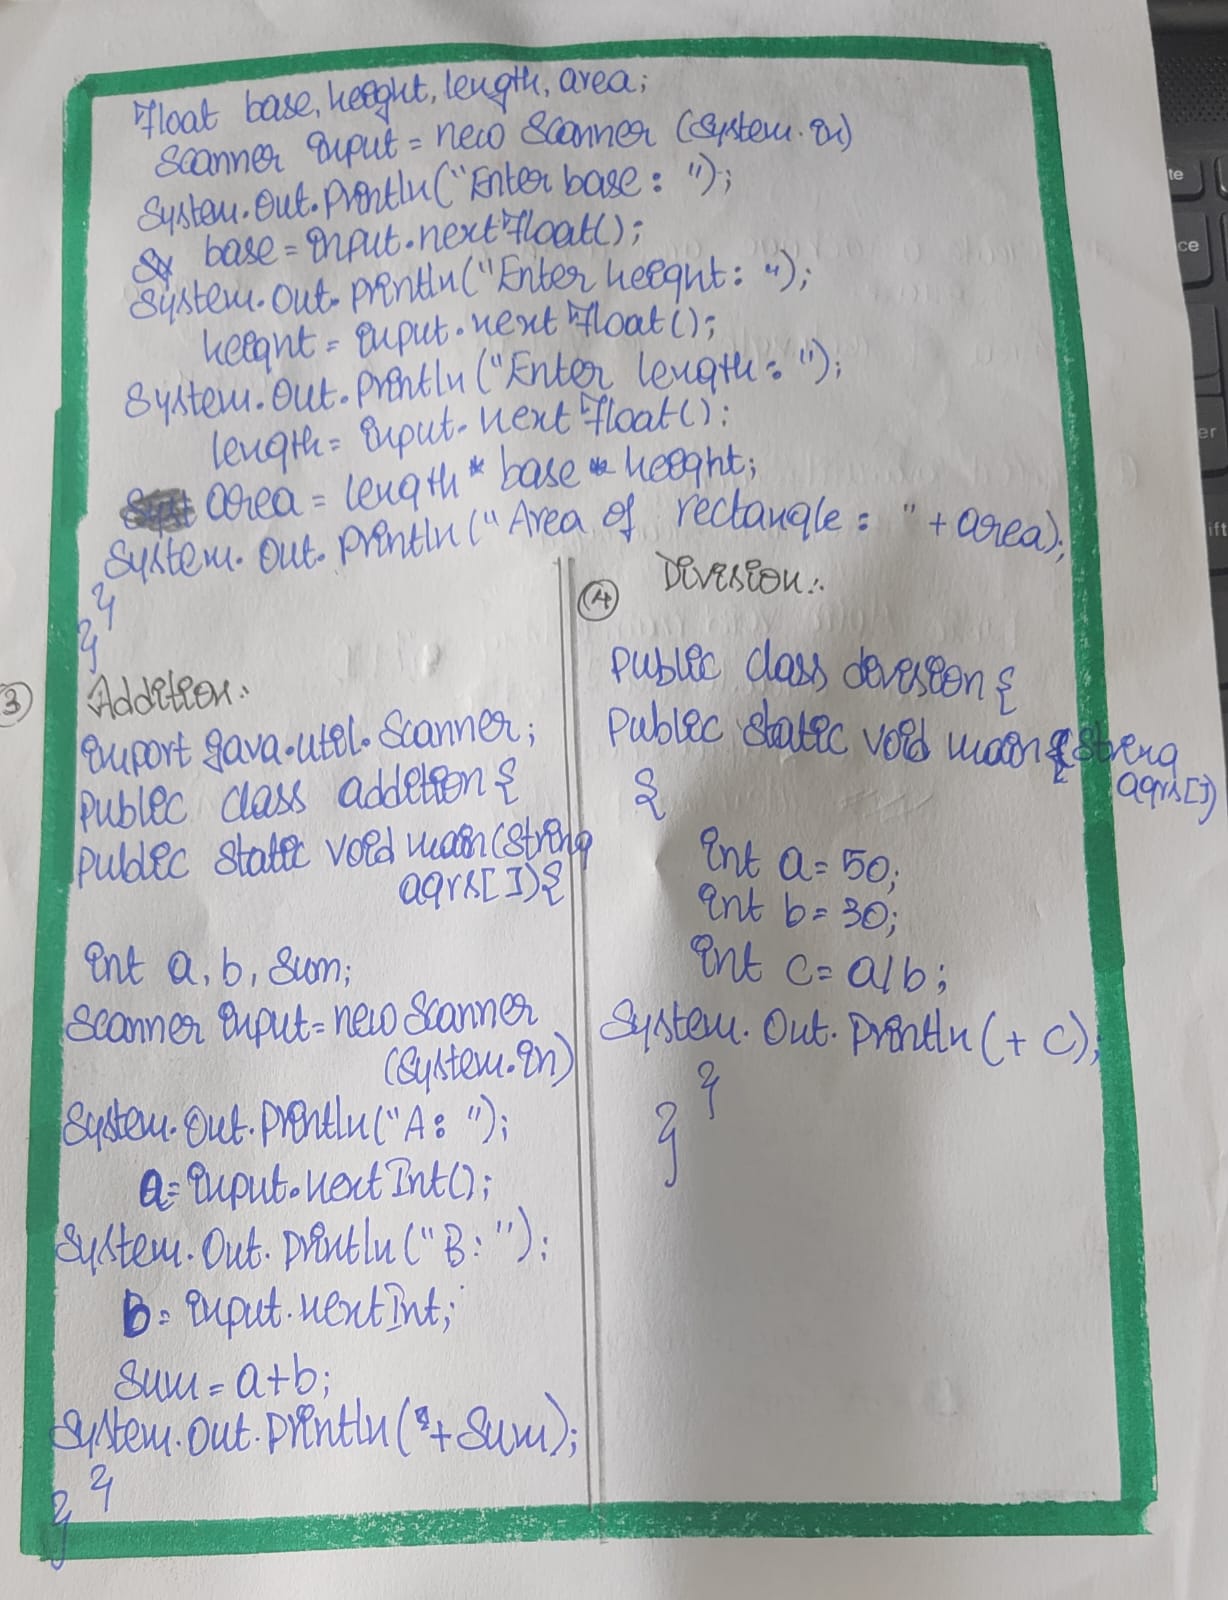 Float base, height, length, area;
Scanner input = new Scanner (System.in)
System.out.println("Enter base: ");
base = input.nextFloat();
System.out.println("Enter height: ");
height = input.next Float();
System.out.println ("Enter length: ");
length = input.next Float();
area = length * base * height;
System.out.println ("Area of rectangle: " + area);
}
}
3 Addition:
import java.util.Scanner;
public class addition {
public static void main(String
aqrs[]){
int a, b, sum;
Scanner input = new Scanner
(System.in)
System.out.println("A: ");
a = input.next Int();
System.out.println("B: ");
B = input.next Int;
Sum = a+b;
System.out.println("+ Sum);
}
}
4 Division:
public class division {
public static void main{String
aqrs[])
{
int a = 50;
int b = 30;
int c = a/b;
System.out.println (+ c);
}
}
te
ce
er
ift